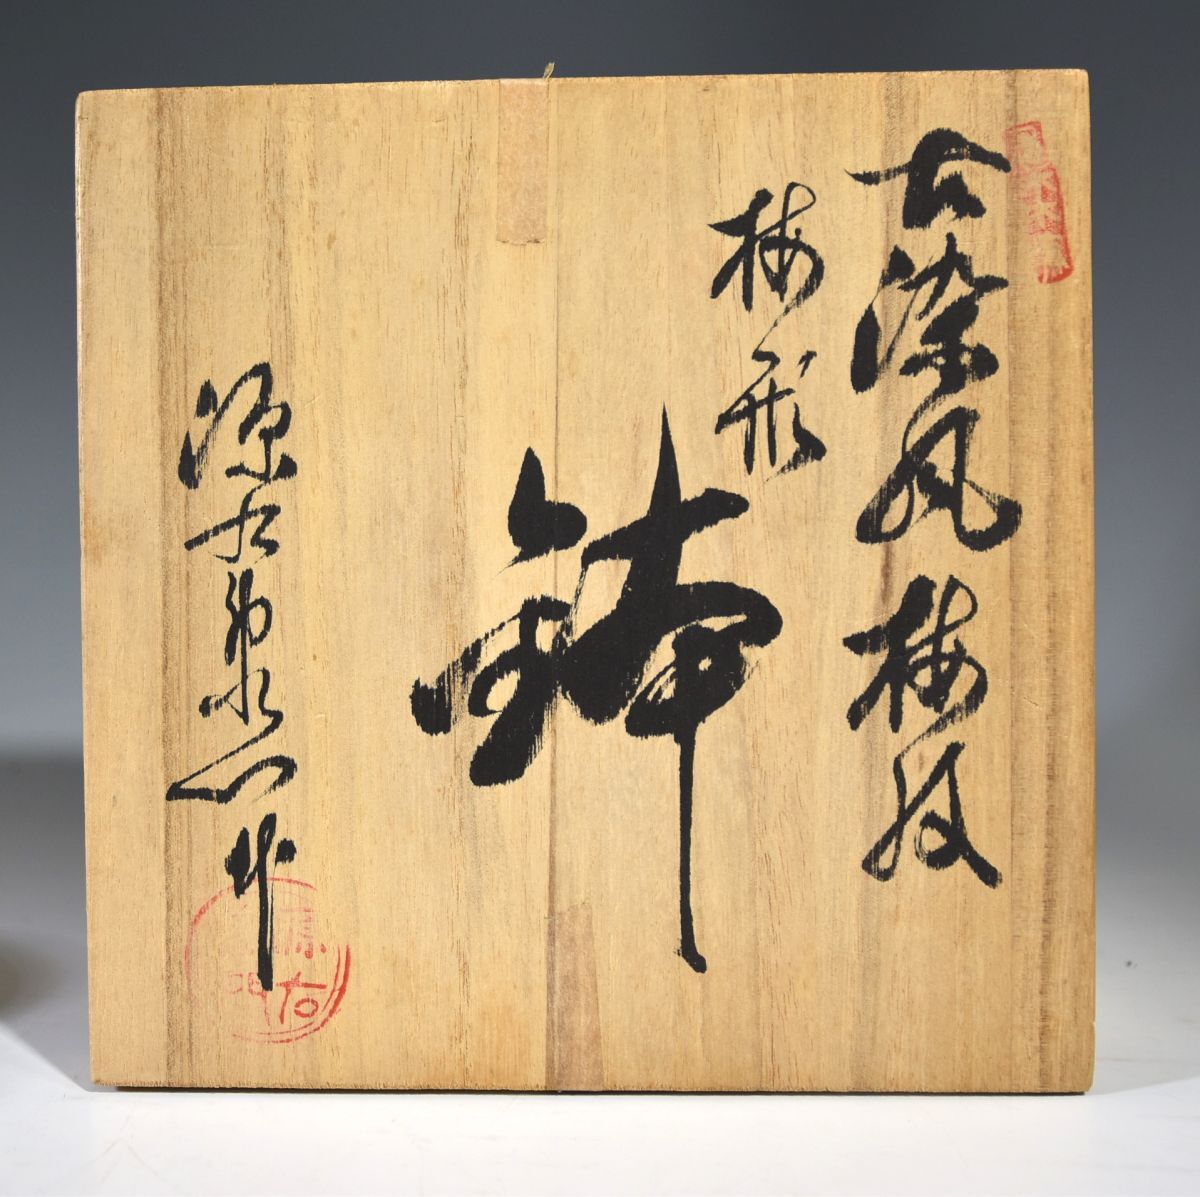 古染風梅紋
梅形
鉢
源右衛門作
源右